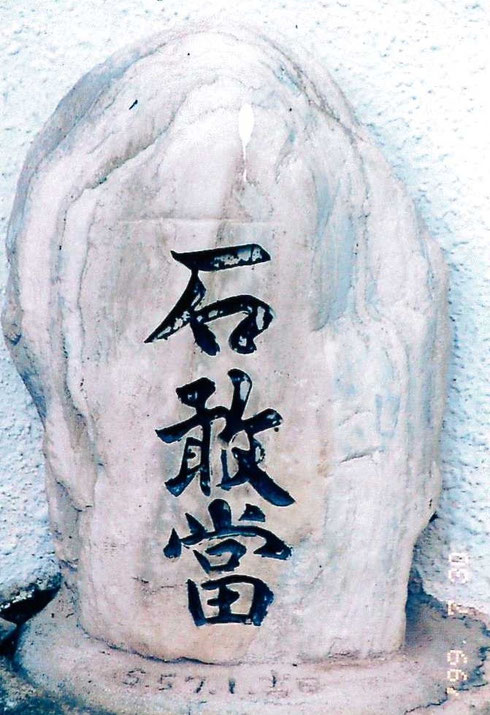 石敢當
S.57.1.16
'99.7.30